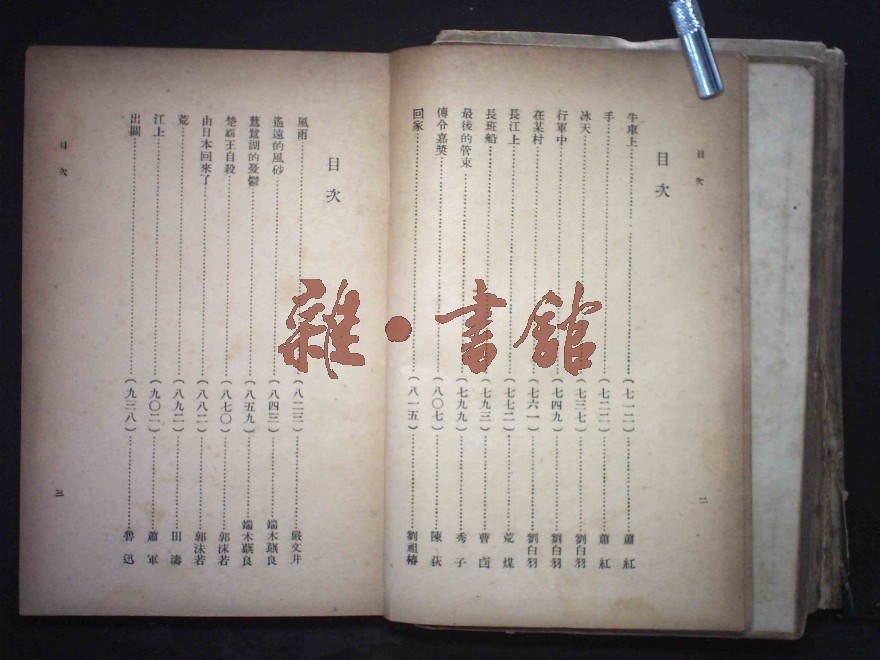 目次
二
目次
牛車上……(七一二)……蕭紅
手……(七二二)……蕭紅
冰天……(七三七)……劉白羽
行軍中……(七四九)……劉白羽
在某村……(七六一)……劉白羽
長江上……(七七二)……荒煤
長班船……(七九三)……曹卣
最後的管束……(七九九)……秀子
傳令嘉獎……(八〇七)……陳荻
回家……(八一五)……劉祖椿
目次
風雨……(八二三)……嚴文井
遙遠的風砂……(八四三)……端木蕻良
鴜鷺湖的憂鬱……(八五九)……端木蕻良
楚霸王自殺……(八七〇)……郭沫若
由日本回來了……(八八二)……郭沫若
荒……(八九二)……田濤
江上……(九〇二)……蕭軍
出關……(九三八)……魯迅
目次
三
雜·書館